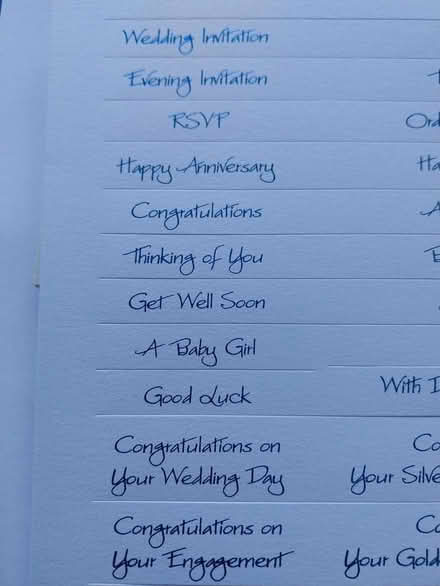 Wedding Invitation
Evening Invitation
RSVP
Happy Anniversary
Congratulations
Thinking of You
Get Well Soon
A Baby Girl
Good Luck
With
Congratulations on
Your Wedding Day
Your
Congratulations on
Your Engagement
Your